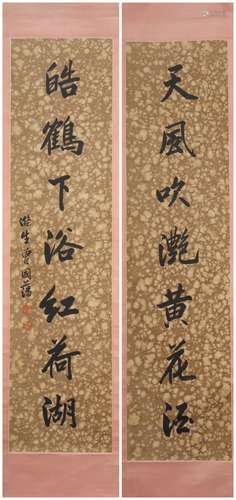 天風吹灔黄花酒
皓鶴下浴紅荷湖
滌生曾國藩